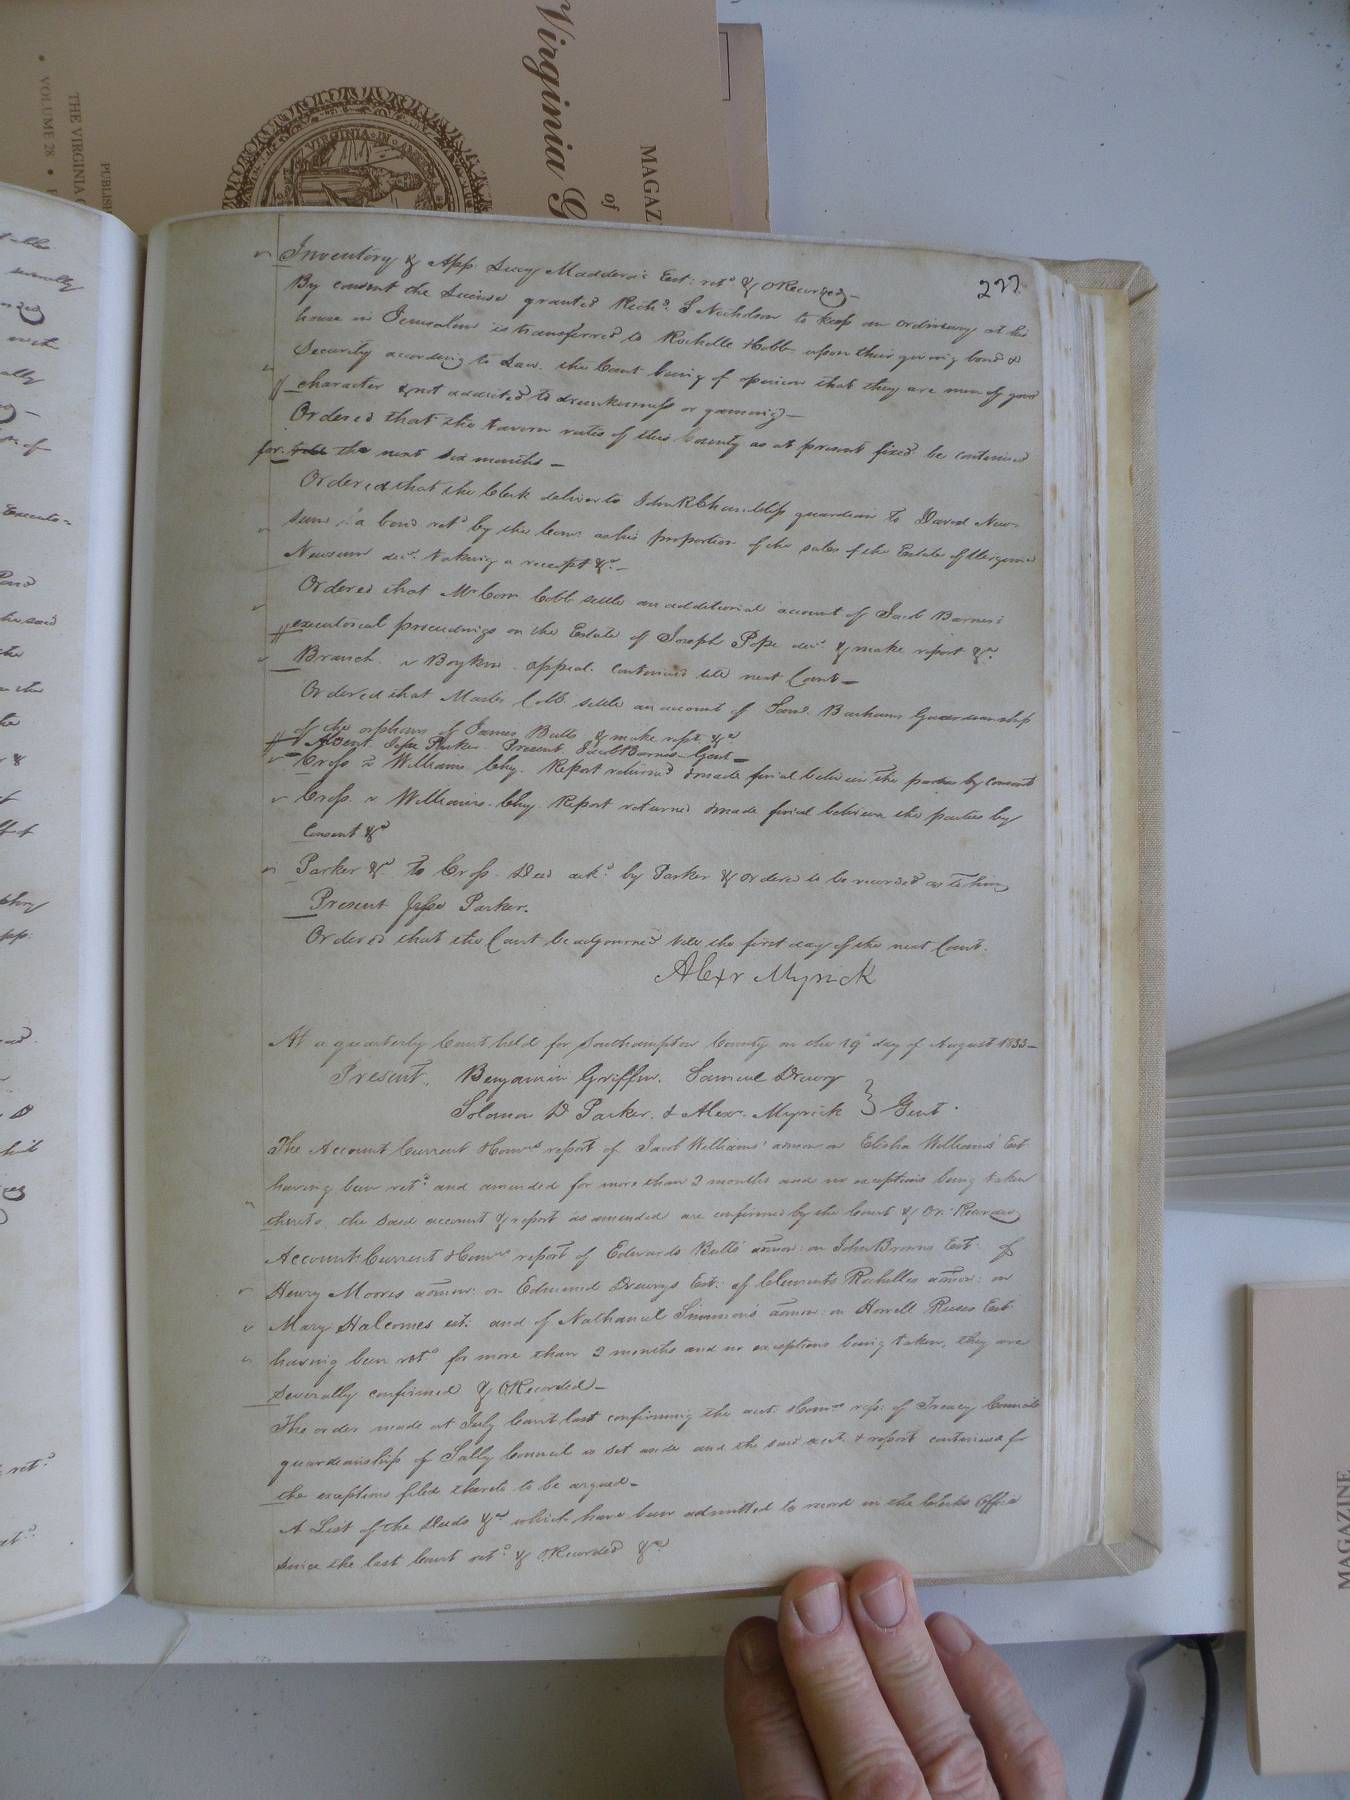 Virginia G
MAGAZ
of
VIRGINIA
THE VIRGINIA
VOLUME 28
PUBLISH
227
Inventory & App. Lucy Maddera's Est: retd & ORecorded—
By consent the License granted Richd. S Nicholson to keep an ordinary at his
house in Jerusalem is transferred to Rochelle & Cobb upon their giving bond &
Security according to Law. the Court being of opinion that they are men of good
character & not addicted to drunkenness or gaming—
Ordered that the tavern rates of this County as at present fixed be continued
for the next six months—
Ordered that the Clerk deliver to John R Chambliss guardian to David New-
sum a bond retd by the Comr as his proportion of the sales of the Estate of
Newsum decd. taking a receipt &c.—
Ordered that Mr Com Cobb settle an additional account of Jacob Barnes's
executorial proceedings on the Estate of Joseph Pope decd. & make report &c.
Branch. v Boykin. appeal. continued till next Court—
Ordered that Master Cobb settle an account of Saml. Barhams Guardianship
of the orphans of James Butts & make report &c
Absent. Jesse Parker. Present. Jacob Barnes Gent—
Cross v Williams Chy. Report returned & made final between the parties by consent
Cross. v Williams. Chy. Report returned & made final between the parties by
Consent &c
Parker &c To Cross. Deed ackd. by Parker & Ordered to be recorded as to him
Present Jesse Parker.
Ordered that the Court be adjourned till the first day of the next Court.
Alexr Myrick
At a quarterly Court held for Southampton County on the 19th day of August 1833—
Present, Benjamin Griffin. Samuel Drewry
Solomon D Parker. & Alexr. Myrick } Gent.
The Account Current & Comrs report of Jacob Williams' admor on Elisha Williams' Est
having been retd. and amended for more than 2 months and no exceptions being taken
thereto, the said account & report as amended are confirmed by the Court & Or. Recorded
Account Current & Comrs report of Edwards Butts' admor: on John Browns Est. of
Henry Morris admor: on Edmund Drewrys Est: of Clements Rochelles admor: on
Mary Halcomes est: and of Nathaniel Simmons's admor: on Howell Reeses Est
having been retd for more than 2 months and no exceptions being taken, they are
severally confirmed & ORecorded—
The order made at July Court last confirming the acct: & Comrs rept: of Treacy Councils
guardianship of Sally Council is set aside and the said acct. & report continued for
the exceptions filed thereto to be argued—
A List of the Deeds &c which have been admitted to record in the Clerks Office
since the last Court retd. & ORecorded &c
MAGAZINE